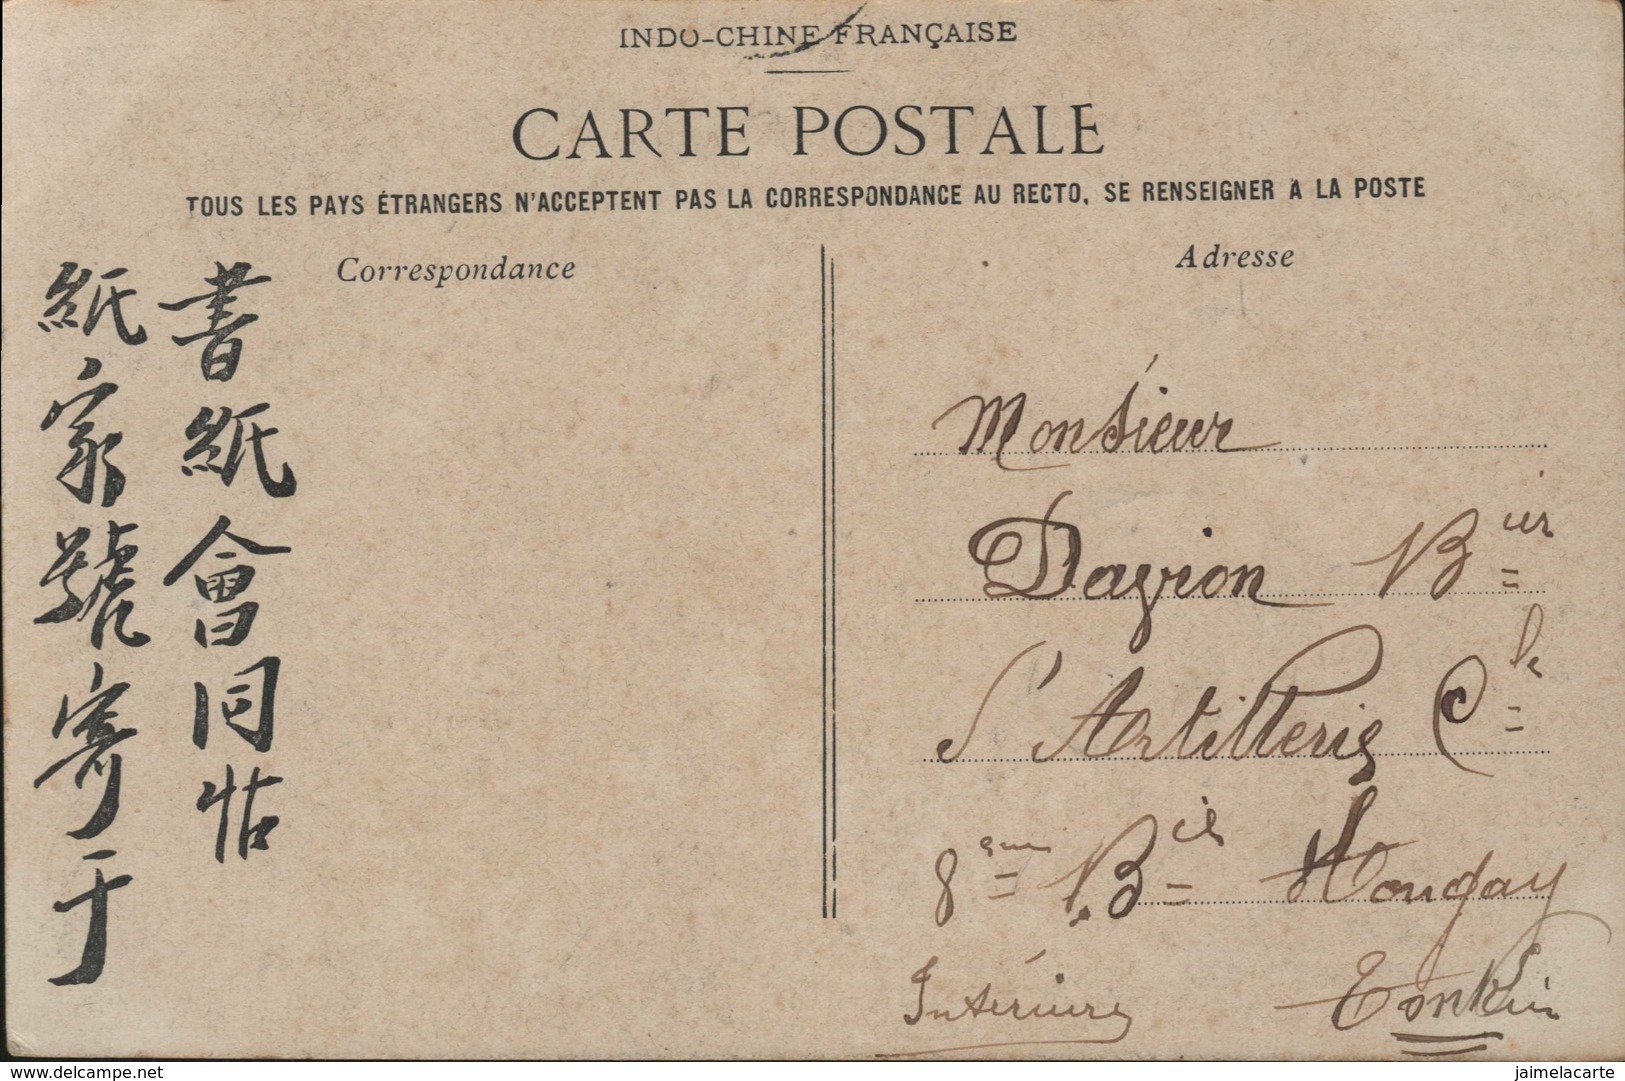 INDO-CHINE FRANÇAISE
CARTE POSTALE
TOUS LES PAYS ÉTRANGERS N'ACCEPTENT PAS LA CORRESPONDANCE AU RECTO, SE RENSEIGNER A LA POSTE
Correspondance
書紙會同
紙家號寄于
Adresse
Monsieur
Dayrion Bier
d'Artillerie Cle
8eme Bie Hongay
Intérieure Tonkin
www.delcampe.net
jaimelacarte